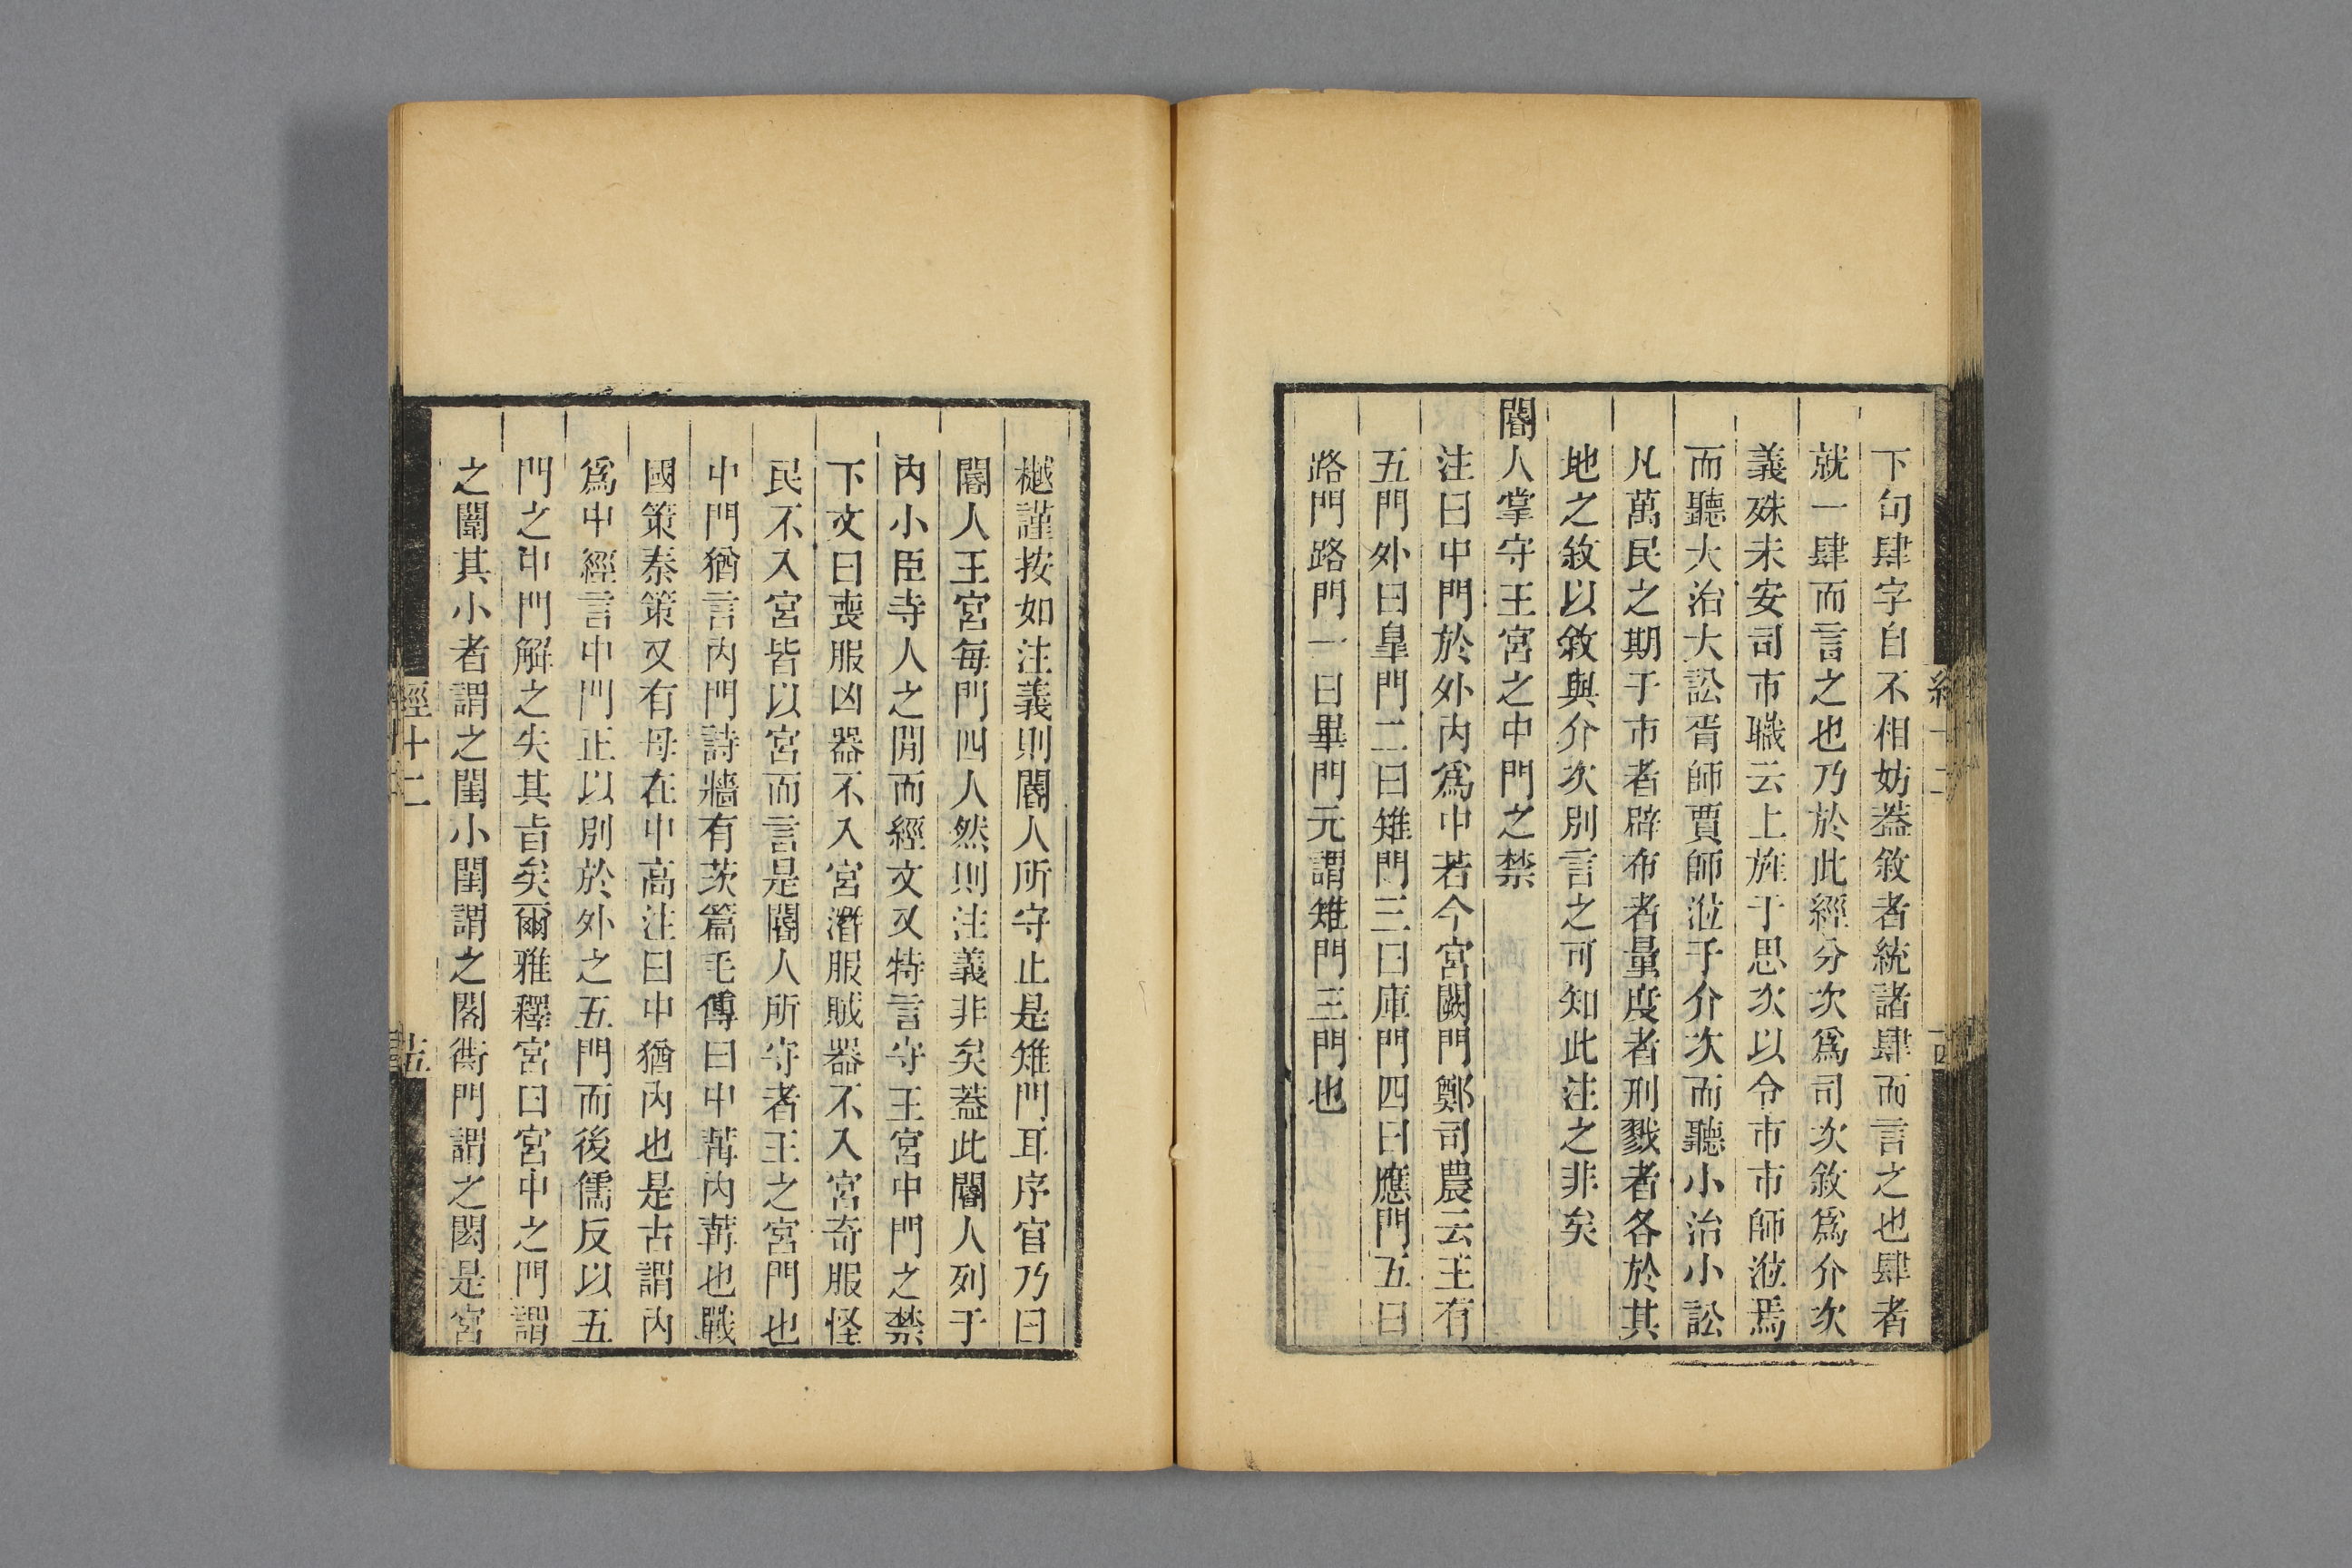 下句肆字自不相妨蓋敘者統諸肆而言之也肆者
就一肆而言之也乃於此經分次爲司次敘爲介次
義殊未安司市職云上旌于思次以令市市師涖焉
而聽大治大訟胥師賈師涖于介次而聽小治小訟
凡萬民之期于市者辟布者量度者刑戮者各於其
地之敘以敘與介次別言之可知此注之非矣
閽人掌守王宮之中門之禁
注曰中門於外內爲中若今宮闕門鄭司農云王有
五門外曰皐門二曰雉門三曰庫門四曰應門五曰
路門路門一曰畢門元謂雉門三門也
樾謹按如注義則閽人所守止是雉門耳序官乃曰
閽人王宮每門四人然則注義非矣蓋此閽人列于
內小臣寺人之閒而經文又特言守王宮中門之禁
下文曰喪服凶器不入宮潛服賊器不入宮奇服怪
民不入宮皆以宮而言是閽人所守者王之宮門也
中門猶言內門詩牆有茨篇毛傳曰中冓內冓也戰
國策秦策又有母在中高注曰中猶內也是古謂內
爲中經言中門正以別於外之五門而後儒反以五
門之中門解之失其旨矣爾雅釋宮曰宮中之門謂
之闈其小者謂之閨小閨謂之閤衖門謂之閎是宮
經十二
十五